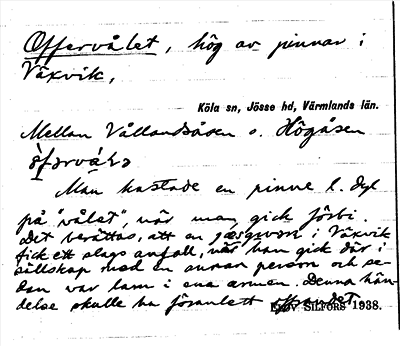 Offervålet, hög av pinnar i
Växvik,
Köla sn, Jösse hd, Värmlands län.
Mellan Vållandsåsen o. Högåsen
Man kastade en pinne l. dyl
på "vålet", när man gick förbi.
Det berättas, att en i Växvik
fick ett slags anfall, när han gick där i
sällskap med en annan person och se-
dan var lam i ena armen. Denna hän-
delse skulle ha föranlett
SILFORS 1938.